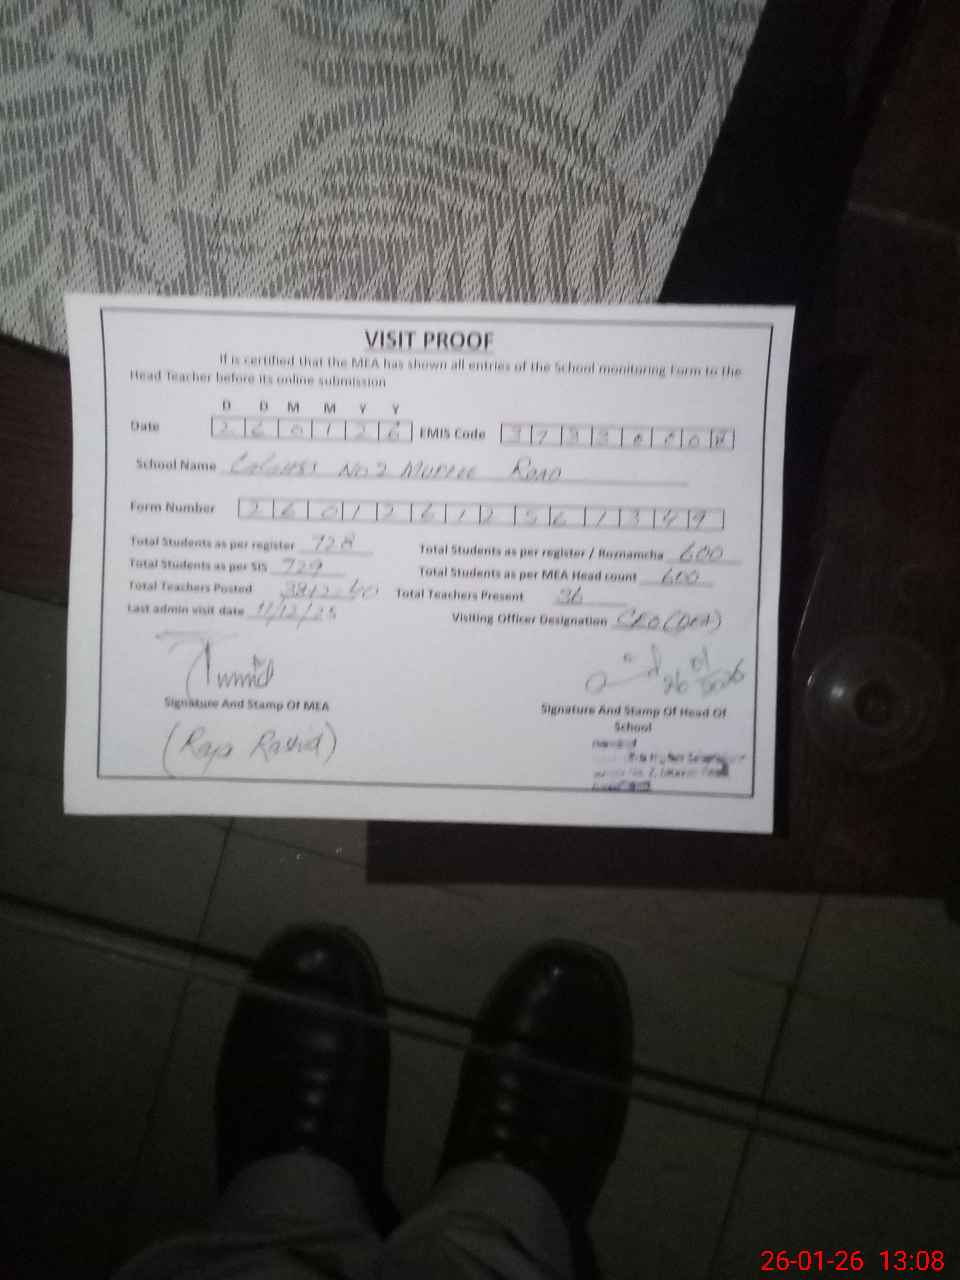 VISIT PROOF
If is certified that the MEA has shown all entries of the School monitoring Form to the
Head Teacher before its online submission
D D M M Y Y
Date 2 6 0 1 2 6 EMIS Code 3 7 3 3 0 0 0
School Name No 2 Murree Road
Form Number 2 6 0 1 2 6 1 2 5 6 1 3 4 9
Total Students as per register 728 Total Students as per register / Roznamcha 600
Total Students as per SIS 729 Total Students as per MEA Head count 600
Total Teachers Posted 38+2=40 Total Teachers Present 36
Last admin visit date 11/12/25 Visiting Officer Designation CEO (DEA)
26 01 2026
Signature And Stamp Of MEA Signature And Stamp Of Head Of
School
(Raja Rashid)
26-01-26 13:08